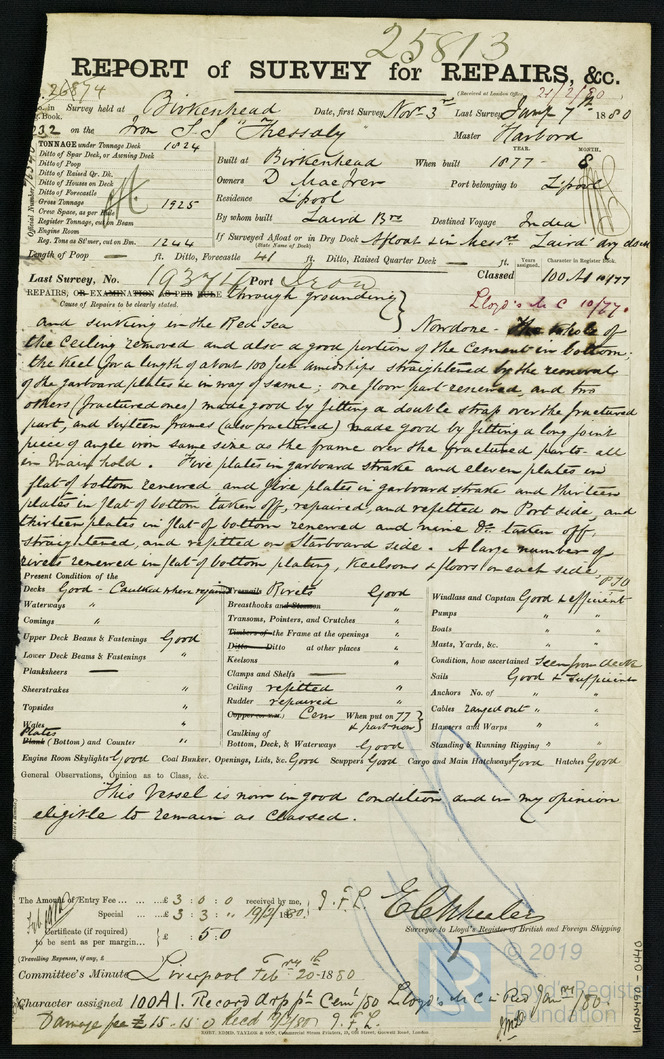 25813
REPORT of SURVEY for REPAIRS, &c.
26874
(Received at London Office 21/2/80
Survey held at Birkenhead Date, first Survey Novr 3rd Last Survey Jany 7th 1880
g. Book.
232 on the Iron S.S "Thessaly Master Harbord
TONNAGE under Tonnage Deck 1824
Ditto of Spar Deck, or Awning Deck
Ditto of Poop
Ditto of Raised Qr. Dk.
Ditto of Houses on Deck
Ditto of Forecastle
Gross Tonnage 1925
Crew Space, as per Rule
Register Tonnage, cut on Beam
Engine Room
Reg. Tonn as St'mer, cut on Bm. 1244
Official Number
YEAR. MONTH.
Built at Birkenhead When built 1877 - 8
Owners D MacIver Port belonging to L'pool
Residence L'pool
By whom built Laird Bros Destined Voyage India
If Surveyed Afloat or in Dry Dock Afloat & in Messrs Laird' dry dock
(State Name of Dock)
Length of Poop — ft. Ditto, Forecastle 41 ft. Ditto, Raised Quarter Deck — ft.
Years assigned. Character assigned.
Last Survey, No. Port Iron Classed 100 A1 10/77
Lloyd's M C 10/77.
REPAIRS, OR EXAMINATION AS PER RULE through grounding
Cause of Repairs to be clearly stated.
and sinking in the Red Sea } Now done - The whole of
the Ceiling removed and also a good portion of the Cement in bottom;
the Keel for a length of about 100 feet amidships straightened by the removal
of the garboard plates &c in way of same; one floor part renewed, and two
others (fractured ones) made good by fitting a double strap over the fractured
part, and sixteen frames (also fractured) made good by fitting a long joint
piece of angle iron same size as the frame over the fractured parts - all
in Main hold. Five plates in garboard strake and eleven plates in
flat of bottom renewed and five plates in garboard strake and thirteen
plates in flat of bottom taken off, repaired, and refitted on Port side, and
thirteen plates in flat of bottom renewed and nine Do taken off,
straightened, and refitted on Starboard side. A large number of
rivets renewed in flat of bottom plating, Keelsons & floors on each side,
PTO
Present Condition of the
Decks Good - Caulked where repaired
Waterways "
Comings "
Upper Deck Beams & Fastenings Good
Lower Deck Beams & Fastenings "
Planksheers —
Sheerstrakes "
Topsides "
Wales "
Plates
Plank (Bottom) and Counter "
Treenails Rivets Good
Breasthooks and Stemson "
Transoms, Pointers, and Crutches "
Timbers of the Frame at the openings "
Ditto Ditto at other places "
Keelsons "
Clamps and Shelfs —
Ceiling refitted "
Rudder repaired "
Copper Cem When put on 77 & part now }
Caulking of
Bottom, Deck, & Waterways Good
Windlass and Capstan Good & efficient
Pumps "
Boats "
Masts, Yards, &c. "
Condition, how ascertained Seen from deck
Sails Good & Sufficient
Anchors No. of "
Cables ranged out "
Hawsers and Warps "
Standing & Running Rigging "
Engine Room Skylights Good Coal Bunker. Openings, Lids, &c. Good Scuppers Good Cargo and Main Hatchway Good Hatches Good
General Observations, Opinion as to Class, &c.
This Vessel is now in good condition and in my opinion
eligible to remain as Classed.
The Amount of Entry Fee ... ... £ 3 : 0 : 0 received by me, J. F. L.
Special ... ... £ 3 : 3 : " 19/2/1880
Certificate (if required) } £ : 5 . 0
to be sent as per margin...
(Travelling Expenses, if any, £
Surveyor to Lloyd's Register of British and Foreign Shipping
Committee's Minute Liverpool Feby 20th 1880
Character assigned 100A1. Record drp pt Cemt /80 Lloyd's M C - Red Jany /80.
Damage fee £ 15 . 15 . 0 Recd 19/2/80 J. F. L.
PORT. EDMD. TAYLOR & SON,
© 2019
LR
Lloyd's Register
Foundation
IRON490-0440